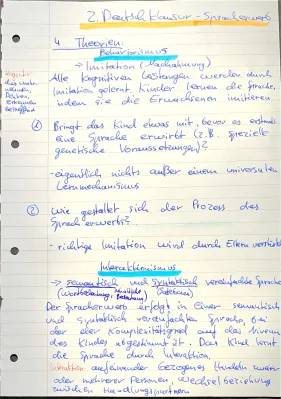 2. Deutsch Klausur - Spracherwerb
4 Theorien:
Behaviorismus
→ Imitation (Nachahmung)
Alle kognitiven Leistungen werden durch
Imitation gelernt. Kinder lernen die Sprache,
indem sie die Erwachsenen imitieren.
① Bringt das Kind etwas mit, bevor es erstmals
eine Sprache erwirbt (z.B. spezielle
genetische Voraussetzungen)?
- eigentlich nichts außer einem universalen
Lernmechanismus
② Wie gestaltet sich der Prozess des
Spracherwerbs?
- richtige Imitation wird durch Eltern verstärkt
Interaktionismus
→ semantisch und syntaktisch vereinfachte Sprache
Der Spracherwerb erfolgt in einer semantisch
und syntaktisch vereinfachten Sprache, bei
der der Komplexitätsgrad auf das Niveau
des Kindes abgestimmt ist. Das Kind lernt
die Sprache durch Interaktion.
Interaktion: aufeinander bezogenes Handeln zweier
oder mehrerer Personen, Wechselbeziehung
zwischen Handlungspartnern